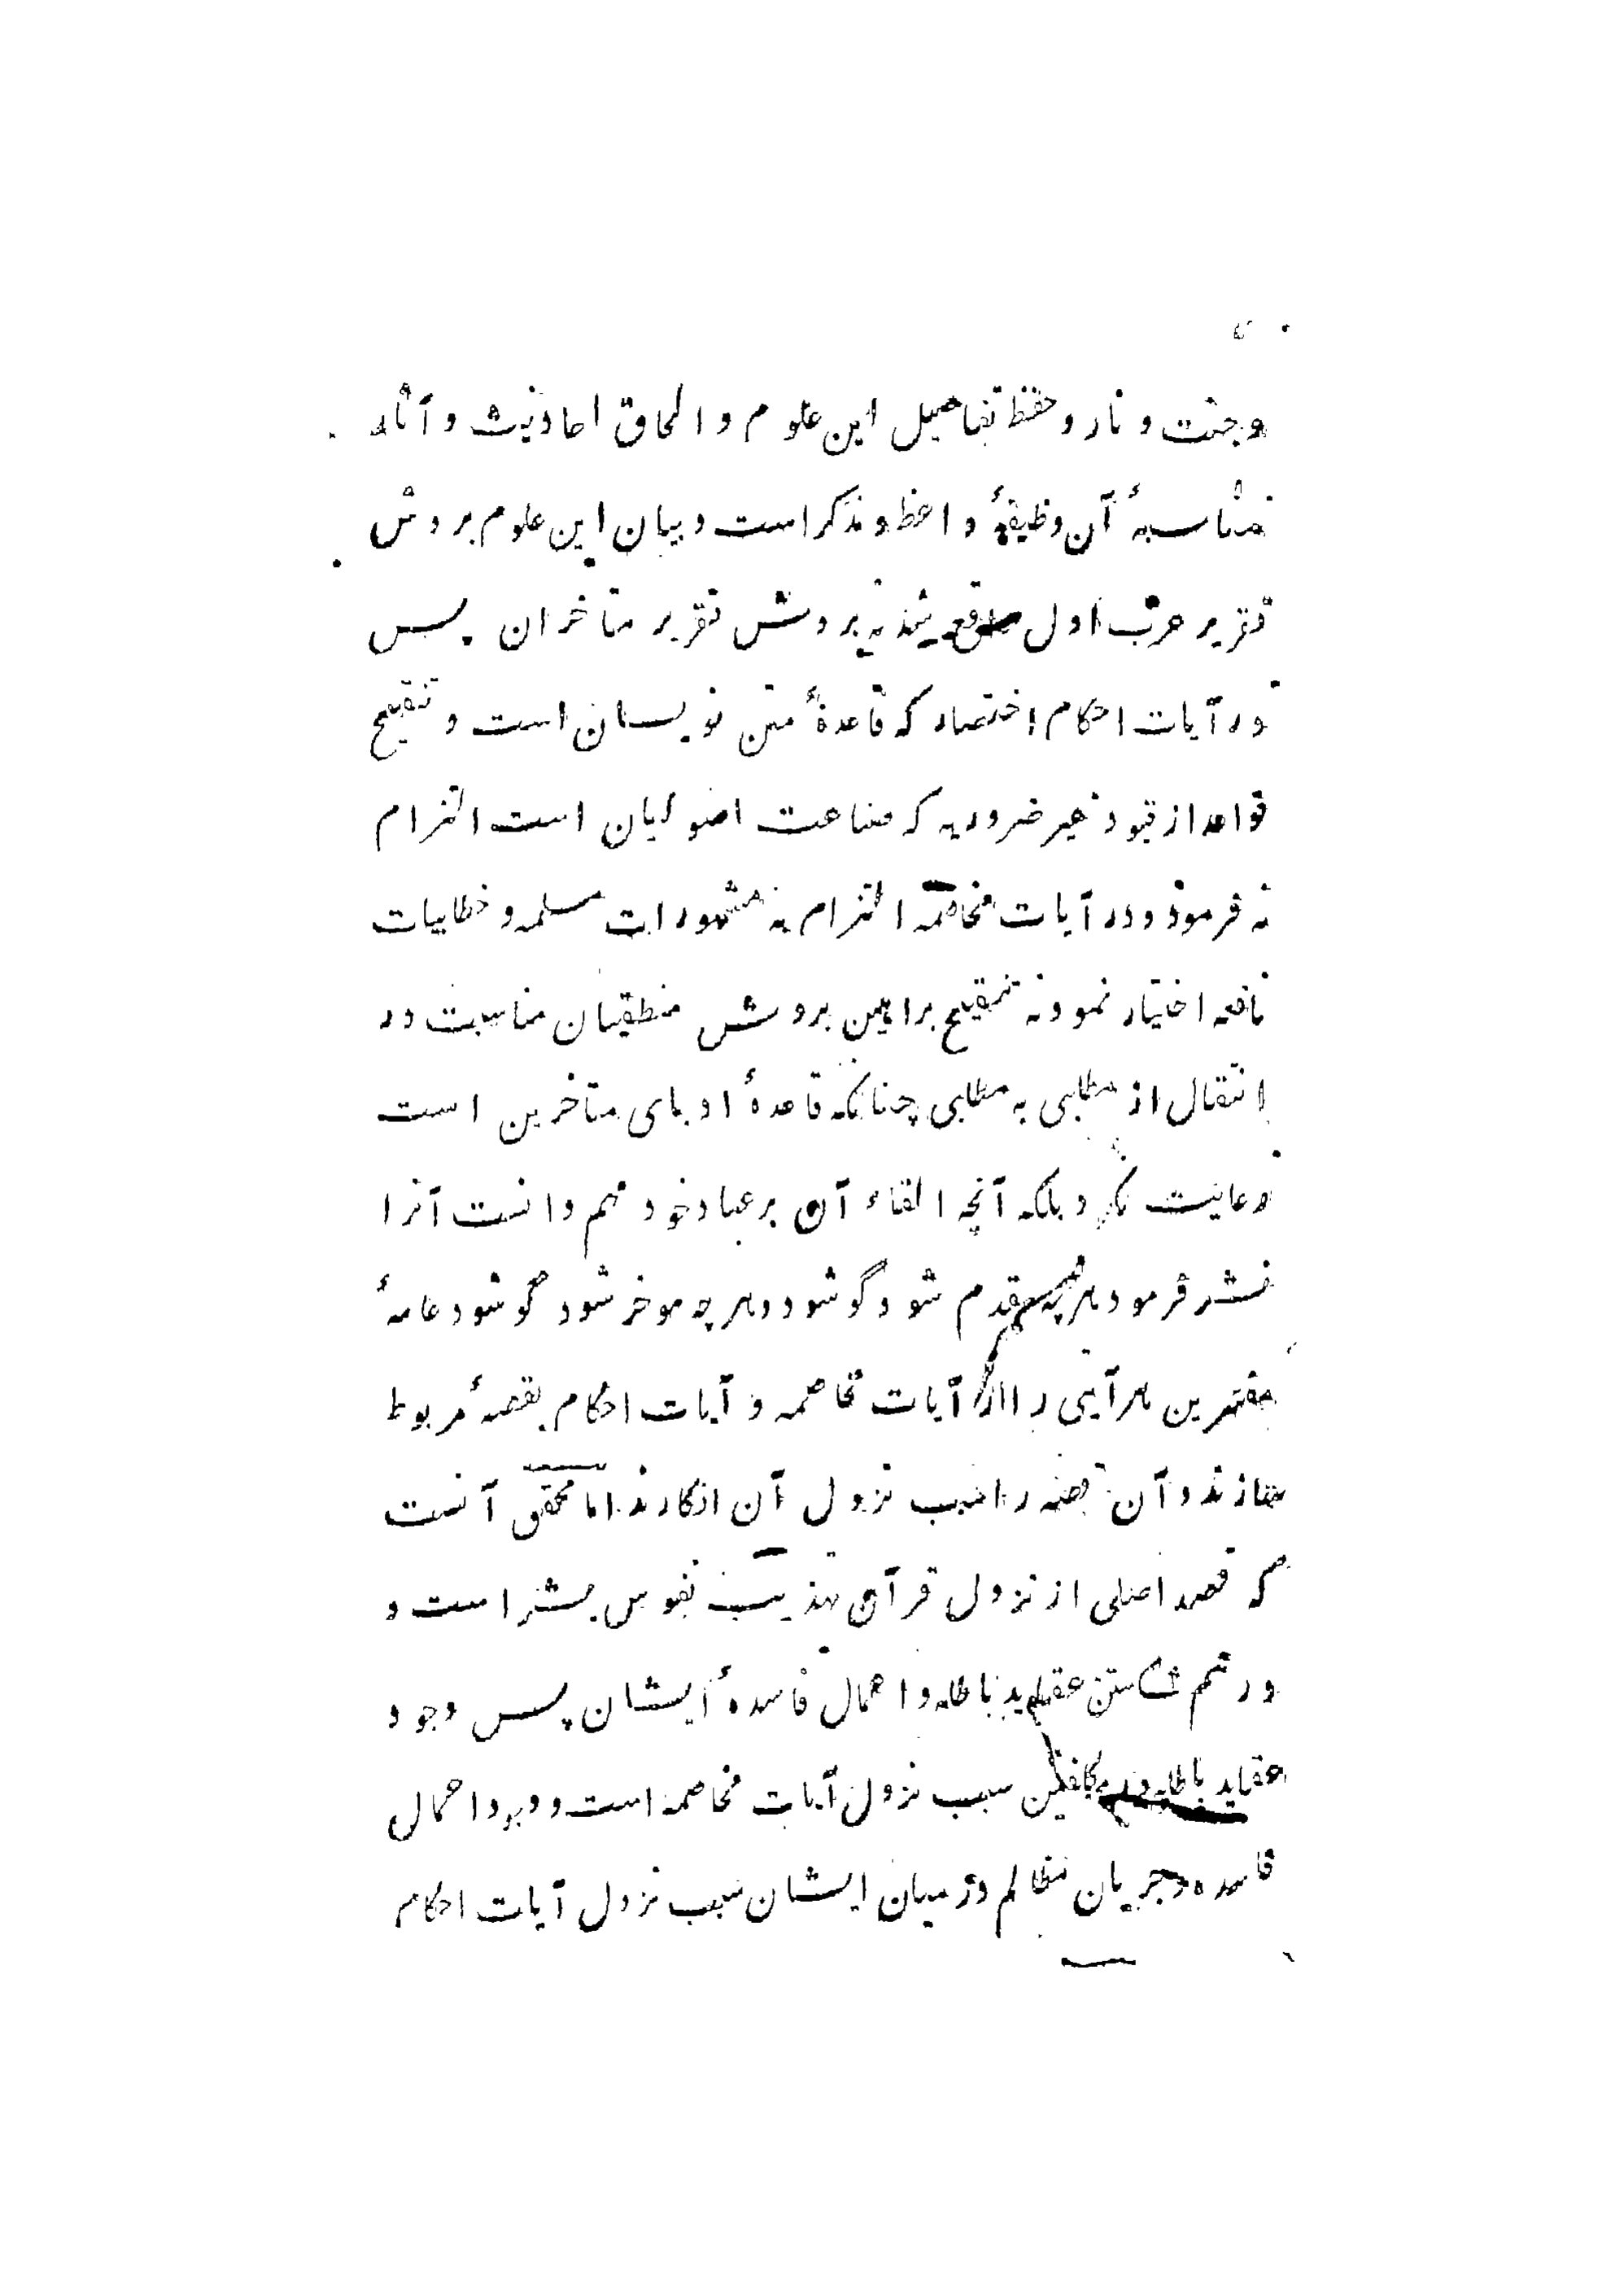 وجنت و نار و حفظ تفاصیل این علوم و الحاق احادیث و آثار
مناسبهٔ آن وظیفهٔ واعظ و مذکر است و بیان این علوم بروش
تقریر عرب اول واقع شد نه بروش تقریر متاخران پس
در آیات احکام اختصار که قاعدهٔ متن نویسان است و تنقیح
قواعد از قیود غیر ضروریه که صناعت اصولیان است التزام
نه فرمود و در آیات مخاصمه التزام به مشهورات مسلمه و خطابیات
نافعه اختیار نمود نه تنقیح براهین بروش منطقیان مناسبت در
انتقال از مطلبی به مطلبی چنانکه قاعدهٔ ادبای متاخرین است
رعایت نکرد بلکه آنچه القاء آن بر عباد خود مهم دانست آنرا
نشر فرمود هر چه مقدم شود گو شود و هر چه موخر شود گو شود عامهٔ
مفسرین هر آیتی را از آیات مخاصمه و آیات احکام بقصهٔ مربوط
سازند و آن قصه را سبب نزول آن انگارند اما محقق آنست
که قصد اصلی از نزول قرآن تهذیب نفوس بشر است و
در هم شکستن عقاید باطله و اعمال فاسدهٔ ایشان پس وجود
عقاید باطله در مکلفین سبب نزول آیات مخاصمه است و وجود اعمال
فاسده و جریان مظالم در میان ایشان سبب نزول آیات احکام